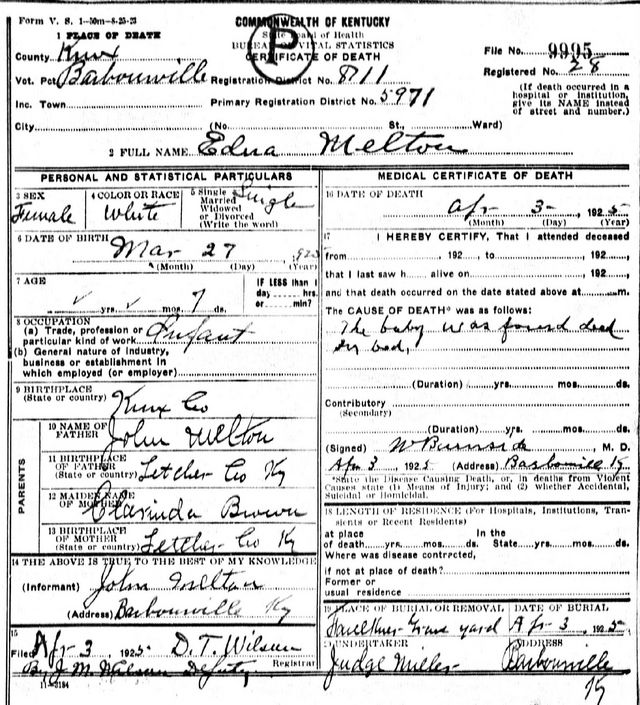 Form V. S. 1—50m—8-25-23
COMMONWEALTH OF KENTUCKY
State Board of Health
BUREAU OF VITAL STATISTICS
CERTIFICATE OF DEATH
P
1 PLACE OF DEATH
County Knox
File No. 9995
Vot. Pct. Barbourville Registration District No. 811
Registered No. 28
Inc. Town Primary Registration District No. 5971
(If death occurred in a
hospital or institution,
give its NAME instead
of street and number.)
City (No. St., Ward)
2 FULL NAME Edna Melton
PERSONAL AND STATISTICAL PARTICULARS
3 SEX
Female
4 COLOR OR RACE
White
5 Single
Married
Widowed
or Divorced
(Write the word)
Single
6 DATE OF BIRTH
Mar 27
(Month) (Day) (Year)
7 AGE
yrs. mos. 7 ds.
IF LESS than 1
day hrs.
or min?
8 OCCUPATION
(a) Trade, profession or
particular kind of work Infant
(b) General nature of industry,
business or establishment in
which employed (or employer)
9 BIRTHPLACE
(State or country) Knox Co
PARENTS
10 NAME OF
FATHER John Melton
11 BIRTHPLACE
OF FATHER
(State or country) Letcher Co Ky
12 MAIDEN NAME
OF MOTHER Clarinda Brown
13 BIRTHPLACE
OF MOTHER
(State or country) Letcher Co Ky
14 THE ABOVE IS TRUE TO THE BEST OF MY KNOWLEDGE
(Informant) John Melton
(Address) Barbourville Ky
15
Filed Apr 3, 1925 D. T. Wilson
Registrar
By J. M. Wilson Deputy
11—3184
MEDICAL CERTIFICATE OF DEATH
16 DATE OF DEATH
Apr 3, 1925
(Month) (Day) (Year)
17 I HEREBY CERTIFY, That I attended deceased
from 192 to 192
that I last saw h alive on 192
and that death occurred on the date stated above at m.
The CAUSE OF DEATH* was as follows:
The baby was found dead
in bed,
(Duration) yrs. mos. ds.
Contributory
(Secondary)
(Duration) yrs. mos. ds.
(Signed) W Burnside, M. D.
Apr 3, 1925 (Address) Barbourville Ky
*State the Disease Causing Death, or, in deaths from Violent
Causes state (1) Means of Injury; and (2) whether Accidental,
Suicidal or Homicidal.
18 LENGTH OF RESIDENCE (For Hospitals, Institutions, Tran-
sients or Recent Residents)
at place In the
of death yrs. mos. ds. State yrs. mos. ds.
Where was disease contrrcted,
if not at place of death?
Former or
usual residence
19 PLACE OF BURIAL OR REMOVAL DATE OF BURIAL
Faulkner Grave yard Apr 3, 1925
20 UNDERTAKER ADDRESS
Judge Miller Barbourville
Ky